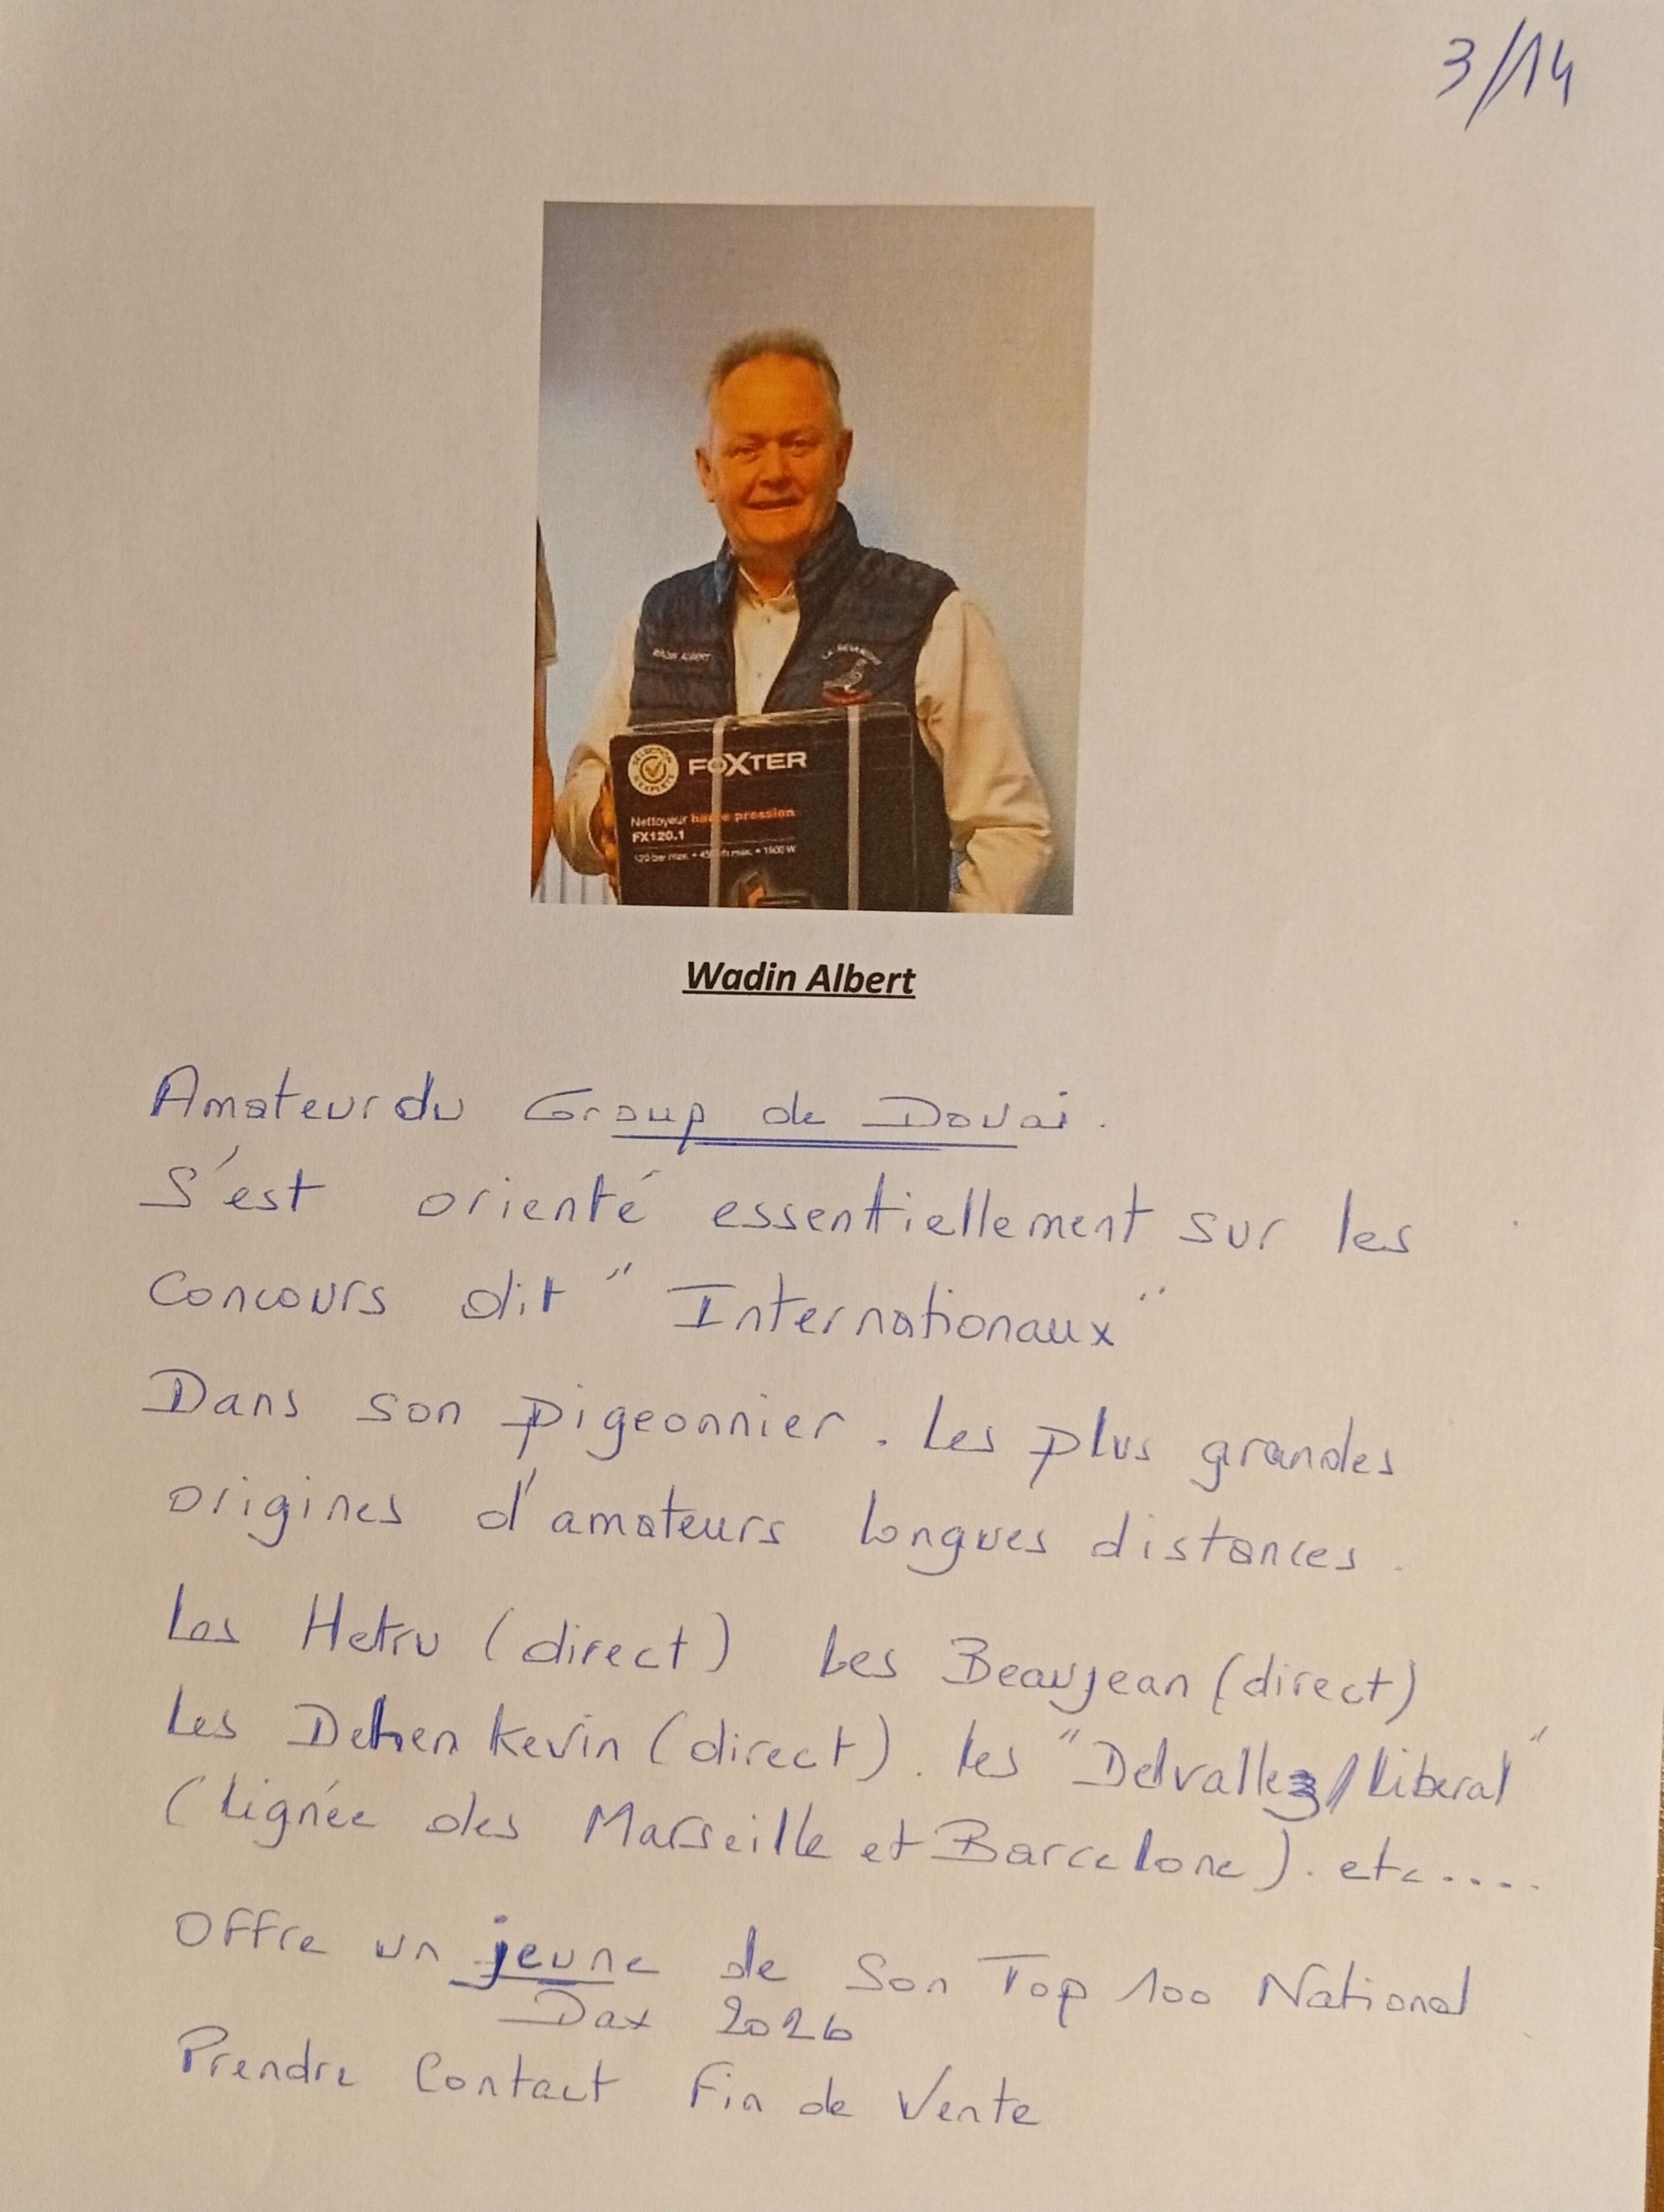 3/14
WADIN ALBERT
SÉLECTION D'EXPERTS
FOXTER
Nettoyeur haute pression
FX120.1
Wadin Albert
Amateur du Group de Douai.
S'est orienté essentiellement sur les
Concours dit "Internationaux"
Dans son pigeonnier. Les plus grandes
origines d'amateurs longues distances.
Les Hetru (direct) Les Beaujean (direct)
Les Dehen Kevin (direct). les "Delvallez/Liberal"
(Lignée des Marseille et Barcelone). etc....
Offre un jeune de Son Top 100 National
Dax 2026
Prendre Contact Fin de Vente